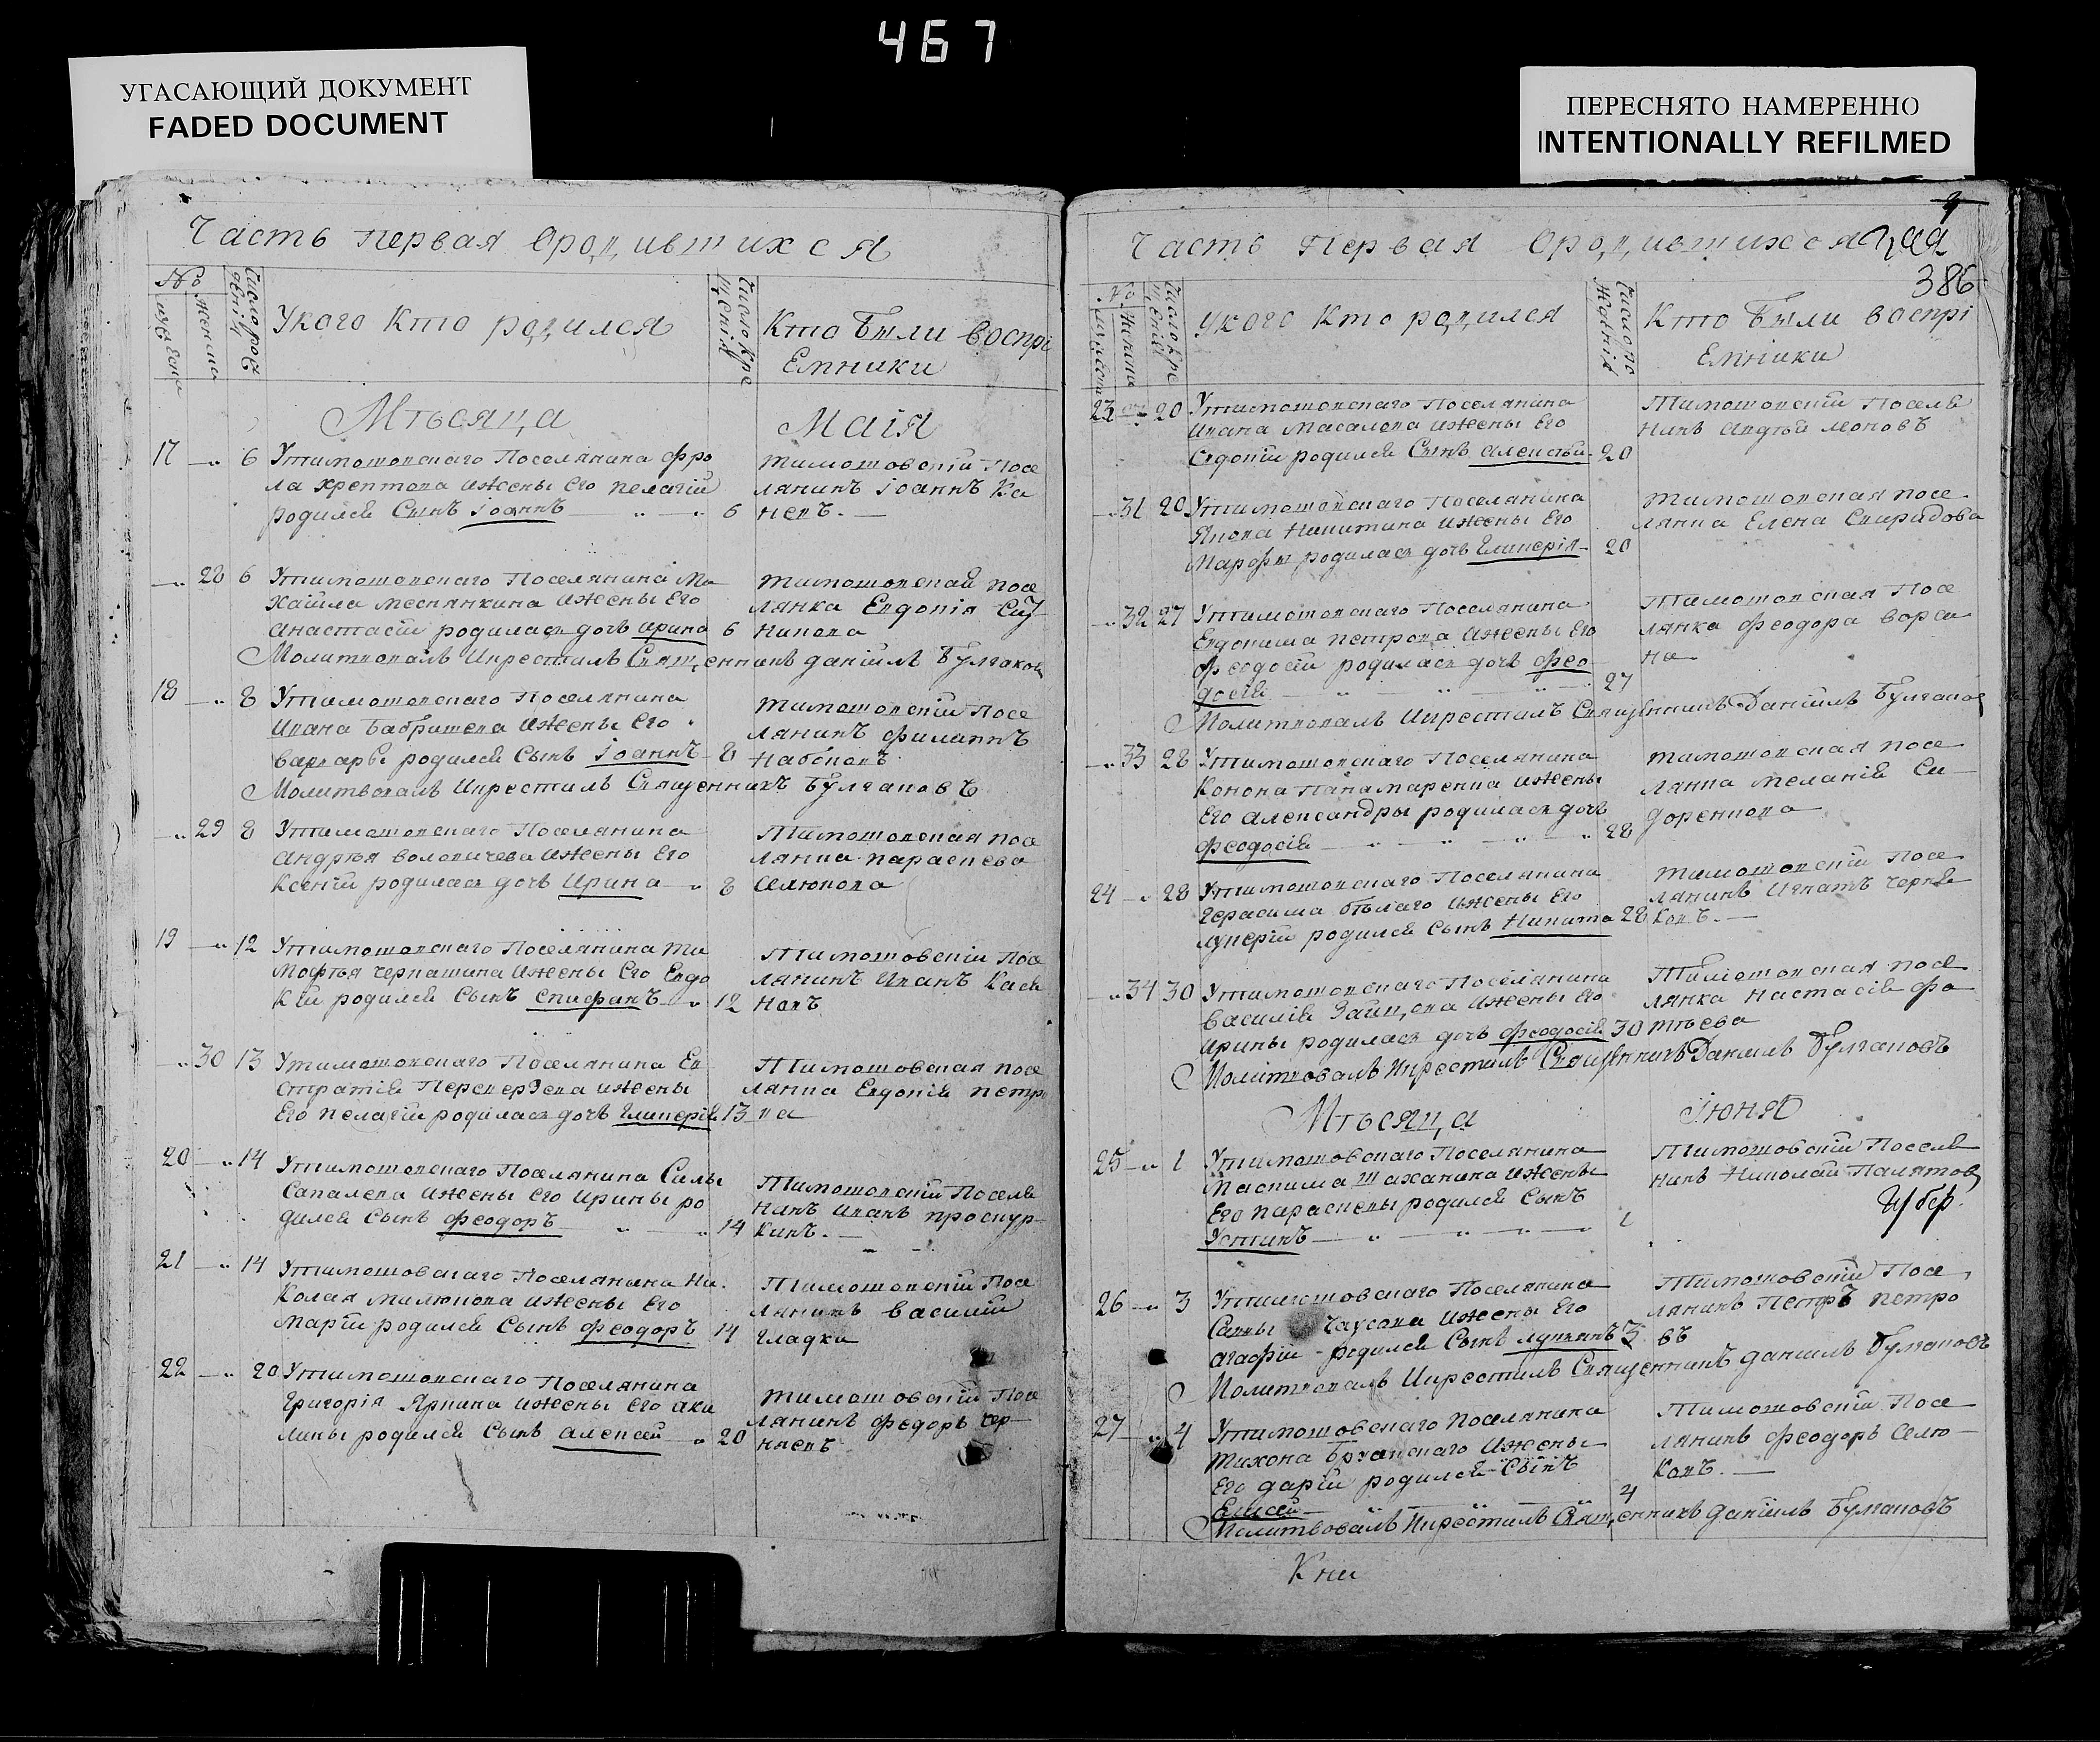 467
УГАСАЮЩИЙ ДОКУМЕНТ
FADED DOCUMENT
ПЕРЕСНЯТО НАМЕРЕННО
INTENTIONALLY REFILMED
Часть первая ородившихся
№
Укого Кто родился
Кто Были воспрі
Емники
Мѣсяца Маія
17 6 Утимошовскаго Поселянина Фро
ла Хрептова ижены Его пелагіи
родился Сынъ Іоаннъ 6
Тимошовскій Посе
лянинъ Іоаннъ Ка
невъ.
28 6 Утимошовскаго Поселянина Ми
хаила ижены Его
Анастасіи родилась дочь Ирина 6
Тимошовская посе
лянка Евдокія
Молитвовалъ Икрестилъ Священникъ Даніилъ Булгаковъ
18 8 Утимошовскаго Поселянина
Ивана ижены Его
Варвары родился Сынъ Іоаннъ 8
Тимошовскій Посе
лянинъ Филиппъ
Набоковъ
Молитвовалъ Икрестилъ Священникъ Булгаковъ
29 8 Утимошовскаго Поселянина
Андрѣя ижены Его
Ксеніи родилась дочь Ирина 8
Тимошовская посе
лянка параскева
Селюкова
19 12 Утимошовскаго Поселянина Ти
мофѣя Черкашина ижены Его Евдо
кіи родился Сынъ Епифанъ 12
Тимошовскій Посе
лянинъ Иванъ Кася
новъ
30 13 Утимошовскаго Поселянина Ев
стратія ижены
Его пелагіи родилась дочь Гликерія 13
Тимошовская посе
лянка Евдокія петро
ва
20 14 Утимошовскаго Поселянина Силы
Сапалева ижены Его Ирины ро
дился Сынъ Феодоръ 14
Тимошовскій Поселя
нинъ Иванъ проскур
кинъ.
21 14 Утимошовскаго Поселянина Ни
колая Милюкова ижены Его
Маріи родился Сынъ Феодоръ 14
Тимошовскій Посе
лянинъ Василій
Гладки
22 20 Утимошовскаго Поселянина
Григорія ижены Его Аки
лины родился Сынъ Алексей 20
Тимошовскій Посе
лянинъ Федоръ
Часть Первая Ородившихся
386
№
Укого Кто родился
Кто Были воспрі
Емники
23 20 Утимошовскаго Поселянина
Ивана Масалова ижены Его
Евдокіи родился Сынъ Алексѣй 20
Тимошовскій Поселя
нинъ Авдѣй Леоновъ
31 20 Утимошовскаго Поселянина
Якова Никитина ижены Его
Марфы родилась дочь Гликерія 20
Тимошовская посе
лянка Елена Спиридова
32 27 Утимошовскаго Поселянина
Евдокима петрова ижены Его
Феодосіи родилась дочь Фео
досія 27
Тимошовская Посе
лянка Феодора
на
Молитвовалъ Икрестилъ Священникъ Даніилъ Булгаковъ
33 28 Утимошовскаго Поселянина
Конона Панамаренка ижены
Его Александры родилась дочь
Феодосія 28
Тимошовская посе
лянка Меланія Си
доренкова
24 28 Утимошовскаго Поселянина
Герасима бѣлаго ижены Его
Лукеріи родился Сынъ Никита 28
Тимошовскій Посе
лянинъ Игнатъ Черня
ковъ.
34 30 Утимошовскаго Поселянина
Василія Зайцова ижены Его
Ирины родилась дочь Феодосія 30
Тимошовская посе
лянка Настасія Фо
тѣева
Молитвовалъ Икрестилъ Священникъ Даніилъ Булгаковъ
Мѣсяца Іюня
25 1 Утимошовскаго Поселянина
Максима Шаханина ижены
Его параскевы родился Сынъ
Устинъ 1
Тимошовскій Поселя
нинъ Николай Палятов
26 3 Утимошовскаго Поселянина
Саввы Чаусова ижены Его
Агафіи родился Сынъ Лукіянъ 3
Тимошовскій Посе
лянинъ Петръ петро
въ
Молитвовалъ Икрестилъ Священникъ Даніилъ Булгаковъ
27 4 Утимошовскаго Поселянина
Тихона ижены
Его Даріи родился Сынъ
Елисей 4
Тимошовскій Посе
лянинъ Феодоръ Селю
ковъ.
Молитвовалъ Икрестилъ Священникъ Даніилъ Булгаковъ
Кни